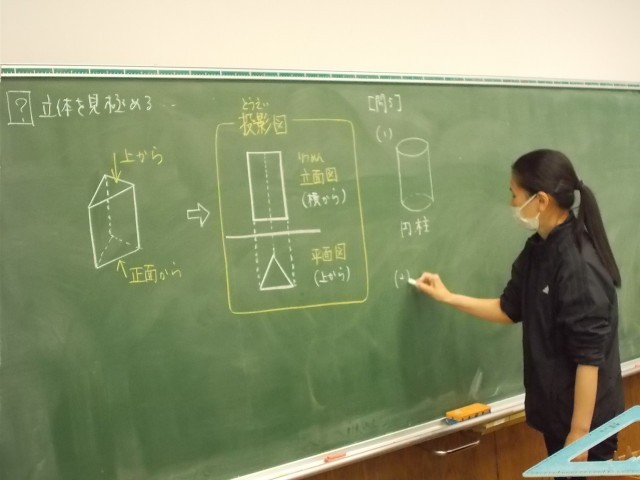 ? 立体を見極める…
上から
正面から
とうえい
投影図
りつめん
立面図
(横から)
平面図
(上から)
[問5]
(1)
円柱
(2)